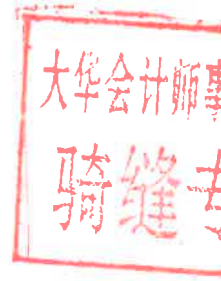 大华会计师事
骑缝专